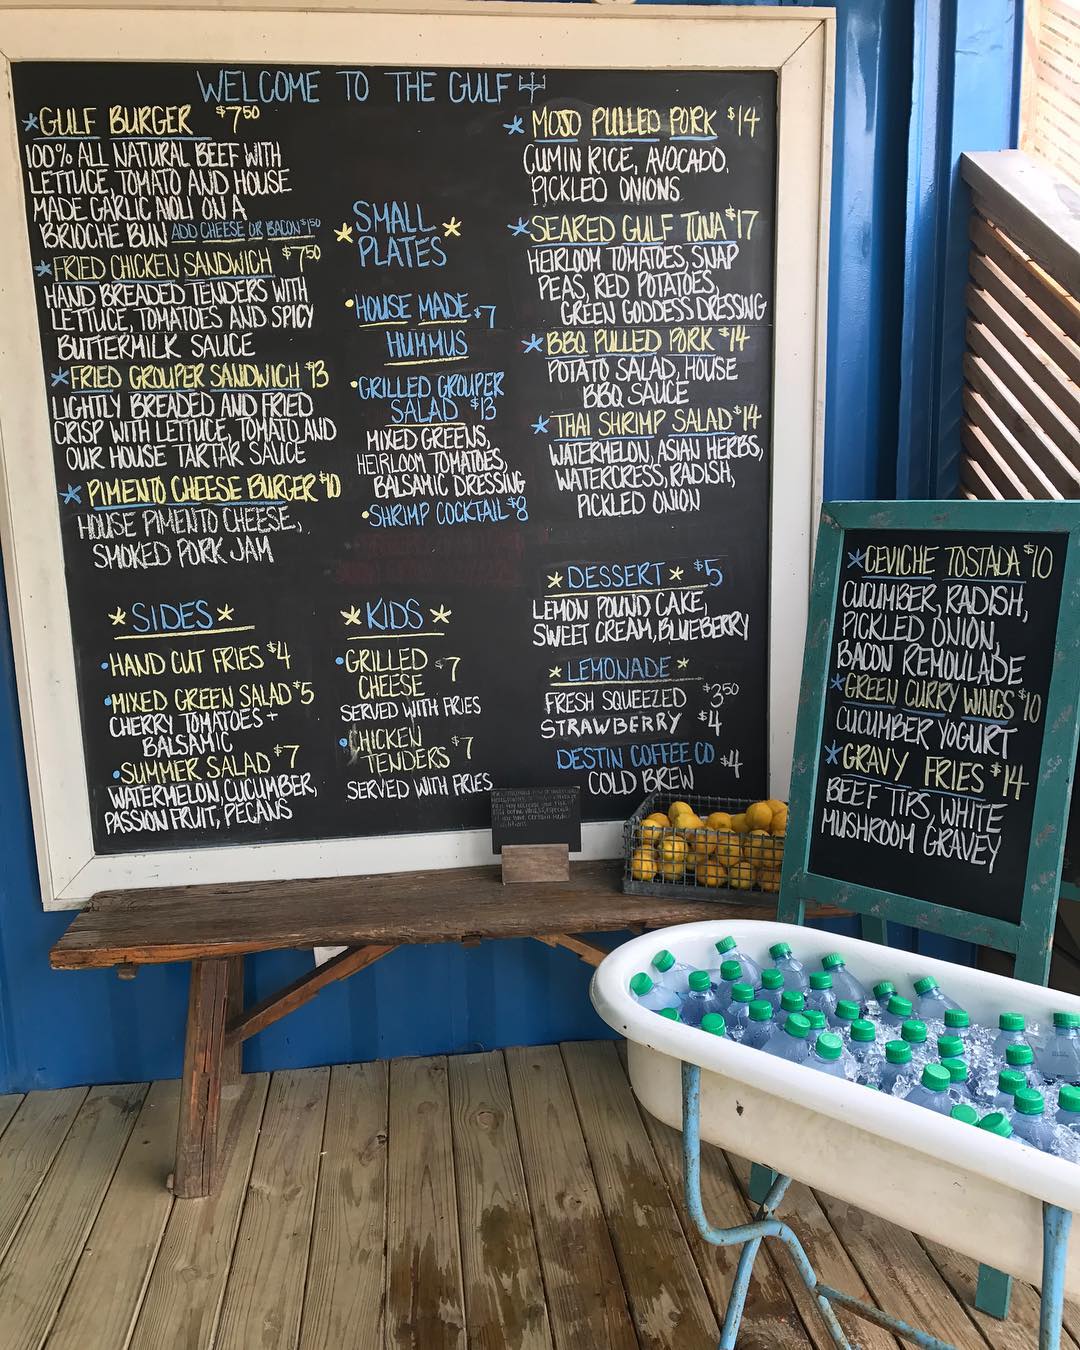 WELCOME TO THE GULF
*GULF BURGER $7⁵⁰
100% ALL NATURAL BEEF WITH
LETTUCE, TOMATO AND HOUSE
MADE GARLIC AIOLI ON A
BRIOCHE BUN ADD CHEESE OR BACON $1⁵⁰
*FRIED CHICKEN SANDWICH $7⁵⁰
HAND BREADED TENDERS WITH
LETTUCE, TOMATOES AND SPICY
BUTTERMILK SAUCE
*FRIED GROUPER SANDWICH $13
LIGHTLY BREADED AND FRIED
CRISP WITH LETTUCE, TOMATO, AND
OUR HOUSE TARTAR SAUCE
*PIMENTO CHEESE BURGER $10
HOUSE PIMENTO CHEESE,
SMOKED PORK JAM
*SIDES*
•HAND CUT FRIES $4
•MIXED GREEN SALAD $5
CHERRY TOMATOES +
BALSAMIC
•SUMMER SALAD $7
WATERMELON, CUCUMBER,
PASSION FRUIT, PECANS
*SMALL
PLATES*
•HOUSE MADE $7
HUMMUS
•GRILLED GROUPER
SALAD $13
MIXED GREENS,
HEIRLOOM TOMATOES,
BALSAMIC DRESSING
•SHRIMP COCKTAIL $8
*KIDS*
•GRILLED $7
CHEESE
SERVED WITH FRIES
•CHICKEN
TENDERS $7
SERVED WITH FRIES
*MOJO PULLED PORK $14
CUMIN RICE, AVOCADO,
PICKLED ONIONS
*SEARED GULF TUNA $17
HEIRLOOM TOMATOES, SNAP
PEAS, RED POTATOES,
GREEN GODDESS DRESSING
*BBQ PULLED PORK $14
POTATO SALAD, HOUSE
BBQ SAUCE
*THAI SHRIMP SALAD $14
WATERMELON, ASIAN HERBS,
WATERCRESS, RADISH,
PICKLED ONION
*DESSERT* $5
LEMON POUND CAKE,
SWEET CREAM, BLUEBERRY
*LEMONADE*
FRESH SQUEEZED $3⁵⁰
STRAWBERRY $4
DESTIN COFFEE CO $4
COLD BREW
*CEVICHE TOSTADA $10
CUCUMBER, RADISH,
PICKLED ONION,
BACON REMOULADE
*GREEN CURRY WINGS $10
CUCUMBER YOGURT
*GRAVY FRIES $14
BEEF TIPS, WHITE
MUSHROOM GRAVEY